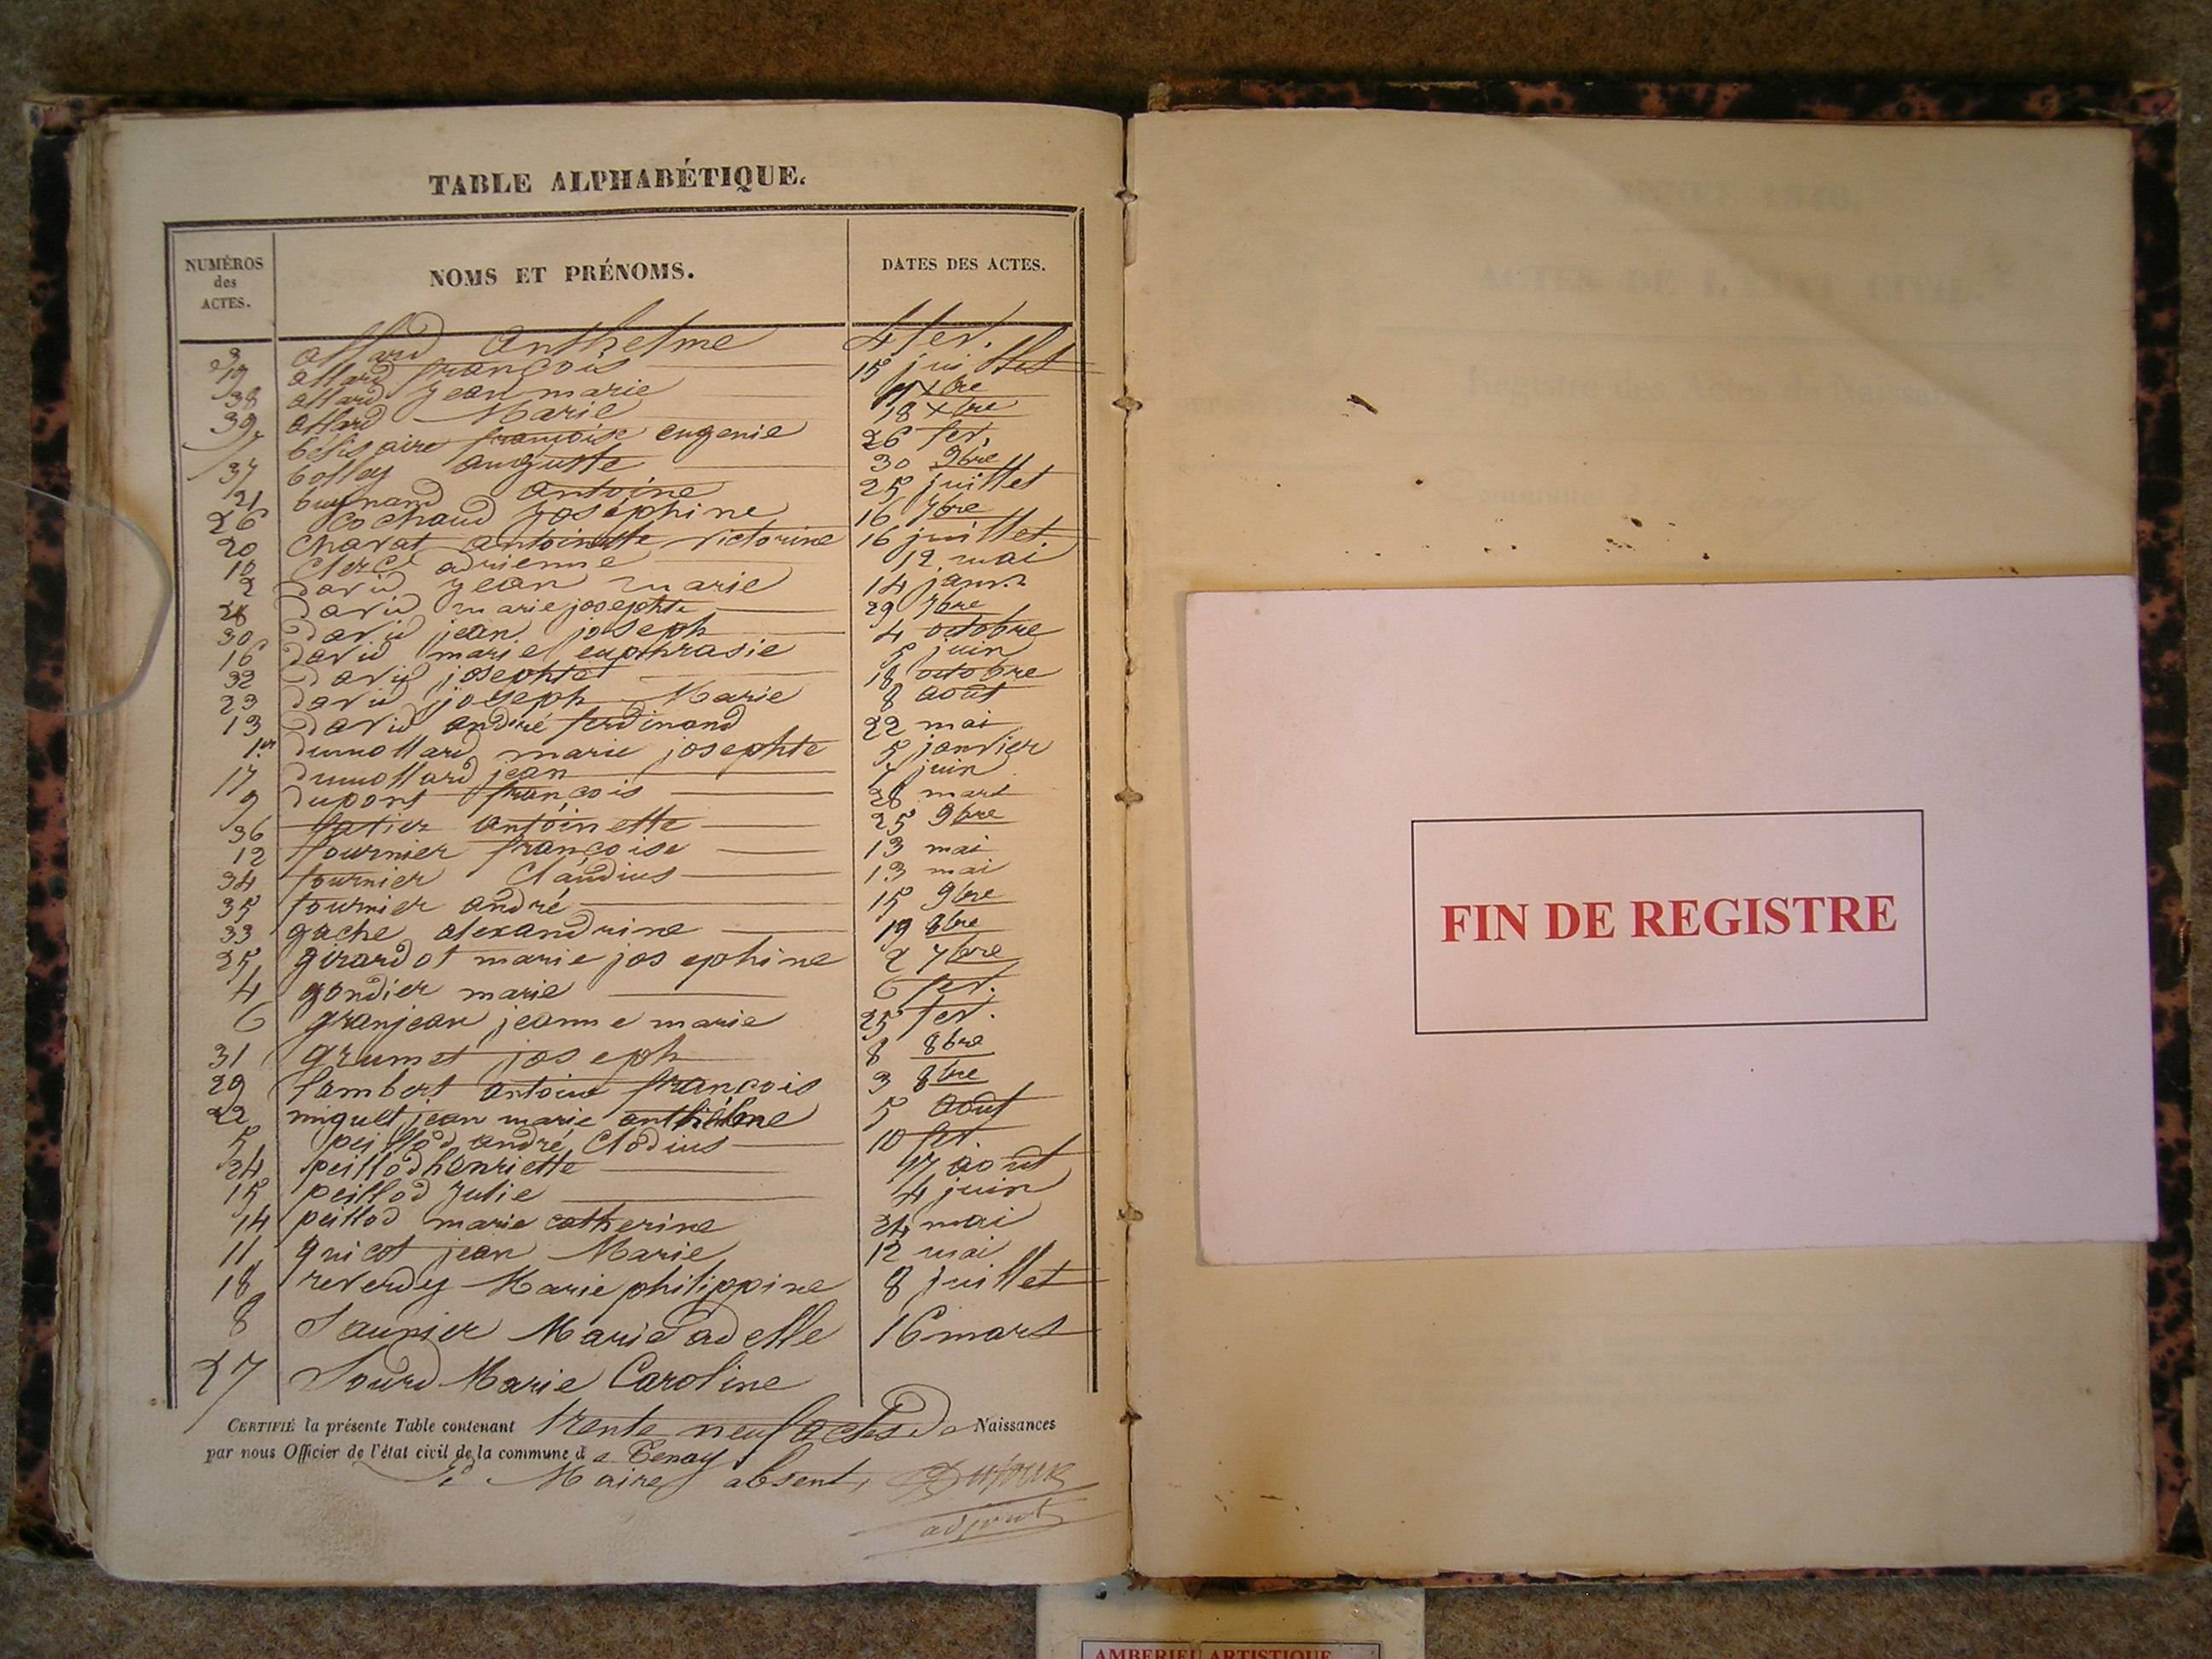 TABLE ALPHABÉTIQUE.
NUMÉROS des ACTES. NOMS ET PRÉNOMS. DATES DES ACTES.
3 allard Anthelme 4 fev.
19 allard françois 15 juillet
38 allard jean marie 17 Xbre
39 allard Marie 18 Xbre
7 bélisaire françoise eugenie 26 fev.
37 bolley auguste 30 9bre
21 bugnand antoine 25 juillet
26 Cochaud Josephine 16 7bre
20 Charat antoinette victorine 16 juillet
10 Clerc adrienne 12 mai
2 david jean marie 14 janv.
28 david marie josephte 29 7bre
30 david jean joseph 4 octobre
16 david marie euphrasie 5 juin
32 david josephte 18 octobre
23 david joseph Marie 8 août
13 david andré ferdinand 22 mai
1er dumollard marie josephte 5 janvier
17 dumollard jean 7 juin
9 dupont françois 28 mars
36 fatier antoinette 25 9bre
12 fournier françoise 13 mai
34 fournier Claudius 13 mai
35 fournier andré 15 9bre
33 gache alexandrine 19 8bre
25 girardot marie josephine 2 7bre
4 gondier marie 6 fev.
6 granjean jeanne marie 25 fev.
31 grumet joseph 8 8bre
29 lambert antoine françois 3 8bre
22 miguet jean marie anthelme 5 août
5 peillod andré Clodius 10 fev.
24 peillod henriette 17 août
15 peillod Julie 4 juin
14 peillod marie catherine 24 mai
11 quicot jean Marie 12 mai
18 reverdy Marie philippine 8 juillet
8 Saunier Marie adelle 16 mars
27 Sourd Marie Caroline
CERTIFIÉ la présente Table contenant trente neuf actes de Naissances
par nous Officier de l'état civil de la commune de Tenay
Le Maire absent, Dufour
adjoint
FIN DE REGISTRE
AMBERIEU ARTISTIQUE